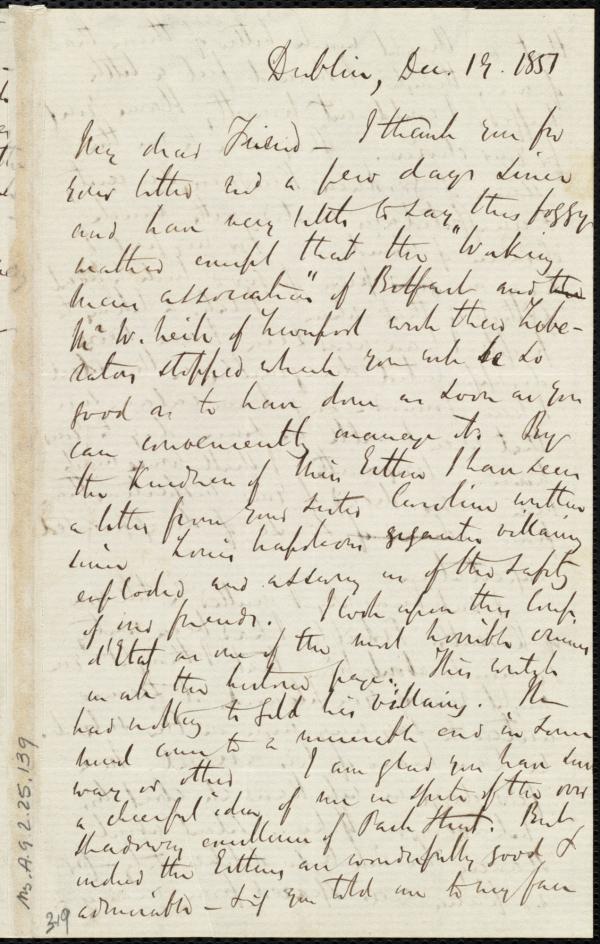 Dublin, Dec. 19. 1851
My dear Friend - I thank you for
your letter recd a few days since
and have very little to say this foggy
weather except that the "Working
mens association" of Belfast and the
Mr W. Neild of Liverpool wish their Libe-
rators stopped which you will be so
good as to have done as soon as you
can conveniently manage it. By
the kindness of Miss Estlin I have seen
a letter from your sister Caroline written
since Louis Napoleons gigantic villainy
exploded and assuring us of the safety
of our friends. I look upon this Coup
d'Etat as one of the most horrible crimes
in all the historic page. This wretch
had nothing to gild his villainy. He
must come to a miserable end in some
way or other I am glad you have such
a cheerful idea of me in spite of the over
shadowing excellence of Park Street. But
indeed the Estlins are wonderfully good &
admirable - & if you told me to my face
Ms. A. 9. 2. 25. 139